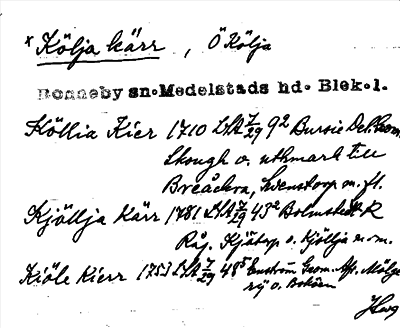 x Kölja kärr, Ö Kölja
Ronneby sn. Medelstads hd. Blek. l.
Köllia Kier 1710 LMA 7/29 92 Bursie Del. Geom.
Skough o. uthmark till
Breåckra, Svenstorp m. fl.
Kjöllja Kärr 1781 LMA 7/29 45² Bolmstedt R
Råg. Kjätorp o. Kjöllja m.m.
Kiöle Kierr 1753 LMA 7/29 48⁵ Enström Geom. Afr.
o.